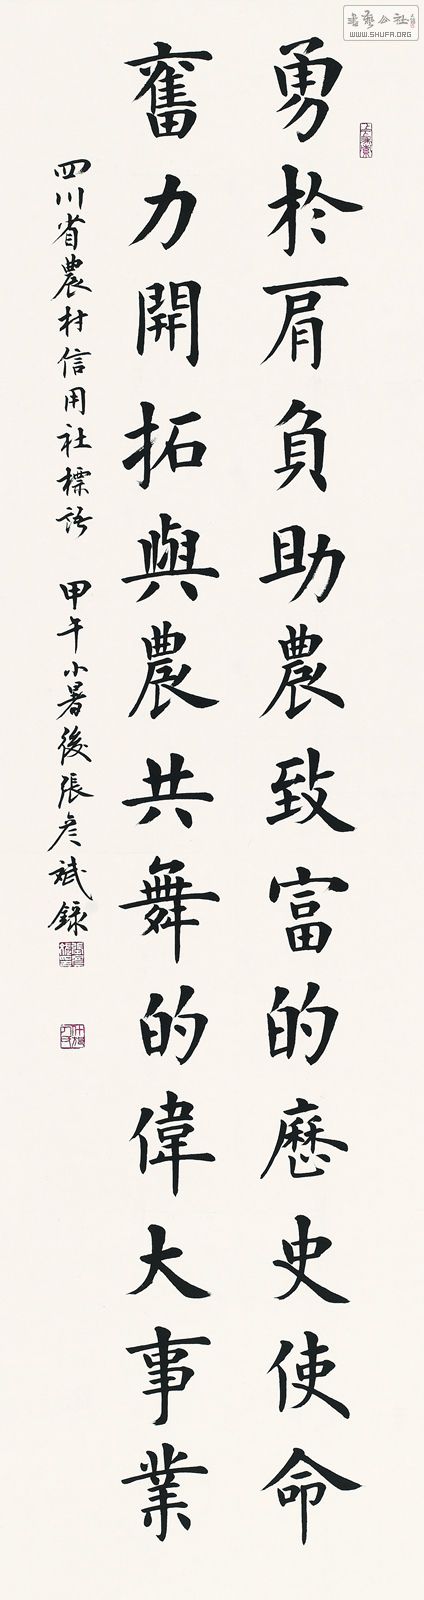 勇於肩負助農致富的歷史使命
奮力開拓與農共舞的偉大事業
四川省農村信用社標語 甲午小暑後張彥斌錄
書藝公社
WWW.SHUFA.ORG